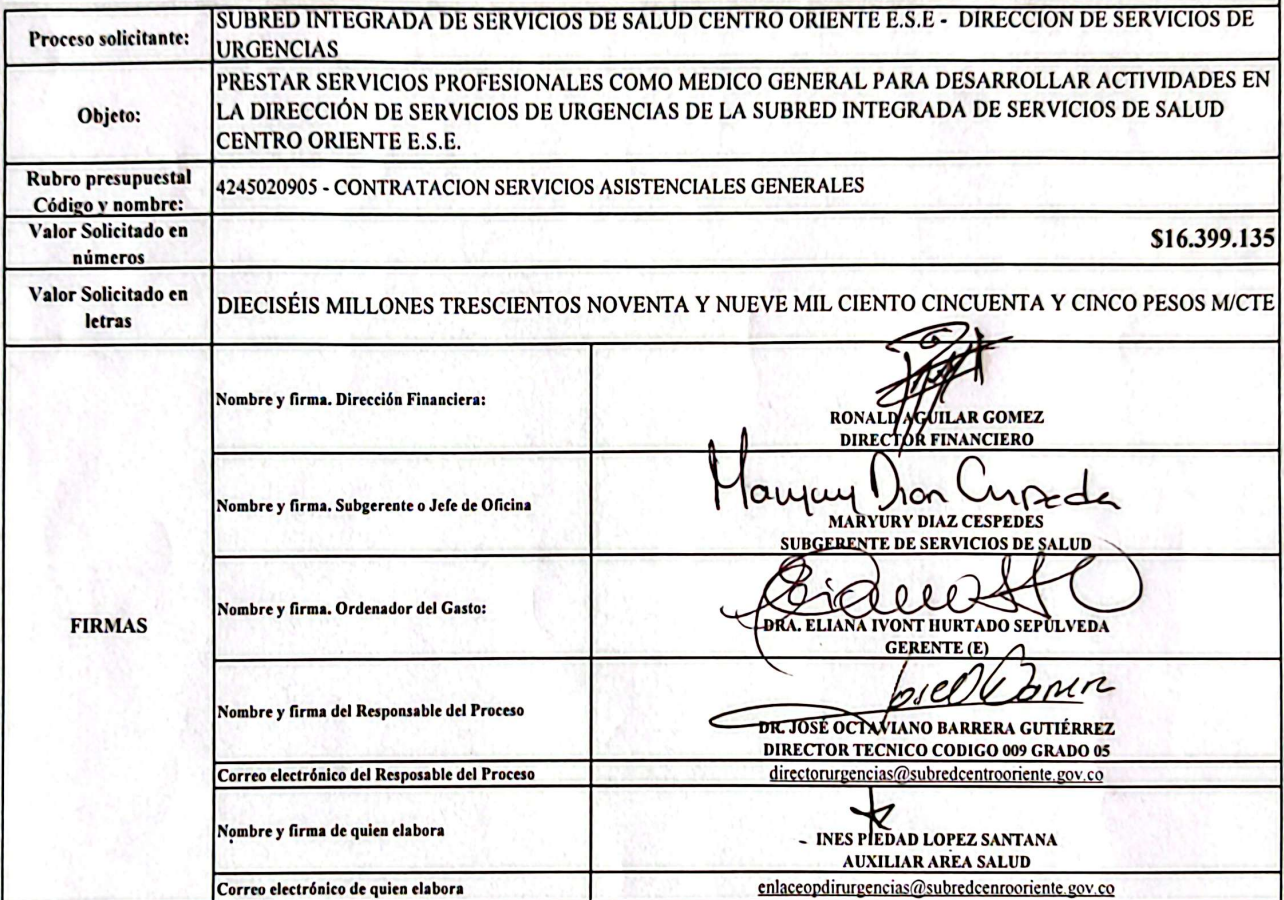 Proceso solicitante:
SUBRED INTEGRADA DE SERVICIOS DE SALUD CENTRO ORIENTE E.S.E - DIRECCION DE SERVICIOS DE
URGENCIAS
Objeto:
PRESTAR SERVICIOS PROFESIONALES COMO MEDICO GENERAL PARA DESARROLLAR ACTIVIDADES EN
LA DIRECCIÓN DE SERVICIOS DE URGENCIAS DE LA SUBRED INTEGRADA DE SERVICIOS DE SALUD
CENTRO ORIENTE E.S.E.
Rubro presupuestal
Código y nombre:
4245020905 - CONTRATACION SERVICIOS ASISTENCIALES GENERALES
Valor Solicitado en
números
$16.399.135
Valor Solicitado en
letras
DIECISÉIS MILLONES TRESCIENTOS NOVENTA Y NUEVE MIL CIENTO CINCUENTA Y CINCO PESOS M/CTE
FIRMAS
Nombre y firma. Dirección Financiera:
RONALD AGUILAR GOMEZ
DIRECTOR FINANCIERO
Nombre y firma. Subgerente o Jefe de Oficina
MARYURY DIAZ CESPEDES
SUBGERENTE DE SERVICIOS DE SALUD
Nombre y firma. Ordenador del Gasto:
DRA. ELIANA IVONT HURTADO SEPÚLVEDA
GERENTE (E)
Nombre y firma del Responsable del Proceso
DR. JOSÉ OCTAVIANO BARRERA GUTIÉRREZ
DIRECTOR TECNICO CODIGO 009 GRADO 05
Correo electrónico del Resposable del Proceso
directorurgencias@subredcentrooriente.gov.co
Nombre y firma de quien elabora
INES PIEDAD LOPEZ SANTANA
AUXILIAR AREA SALUD
Correo electrónico de quien elabora
enlaceopdirurgencias@subredcenrooriente.gov.co